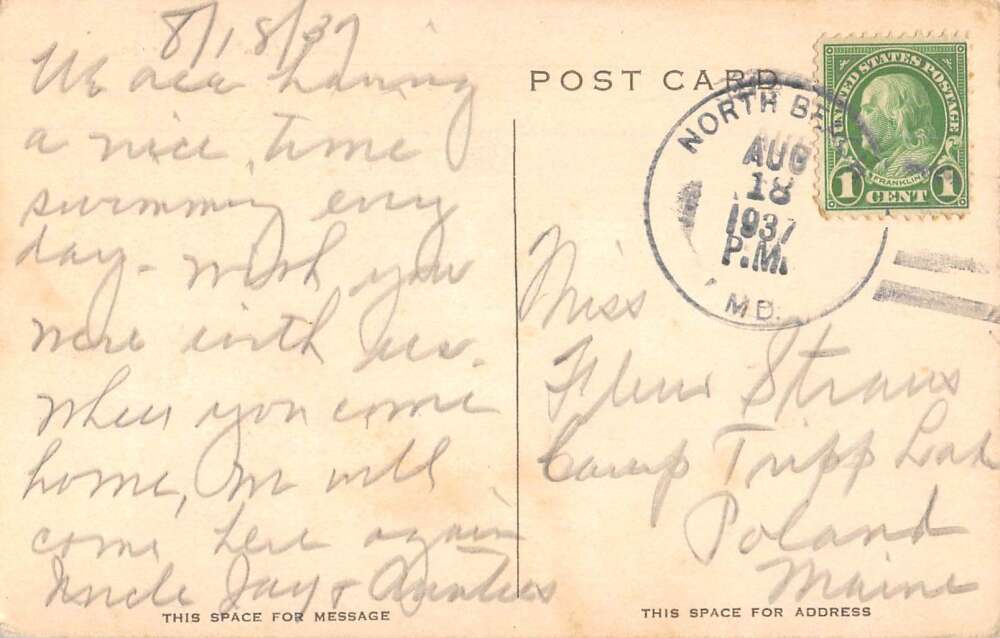 8/18/37
We are having
a nice time
swimming every
day - wish you
were with us.
When you come
home, we will
come here again
Uncle Jay & Aunties
THIS SPACE FOR MESSAGE
POST CARD
UNITED STATES POSTAGE
FRANKLIN
1 CENT 1
NORTH
AUG
18
1937
P.M.
MD.
Miss
Fleur Straus
Camp Tripp Lake
Poland
Maine
THIS SPACE FOR ADDRESS